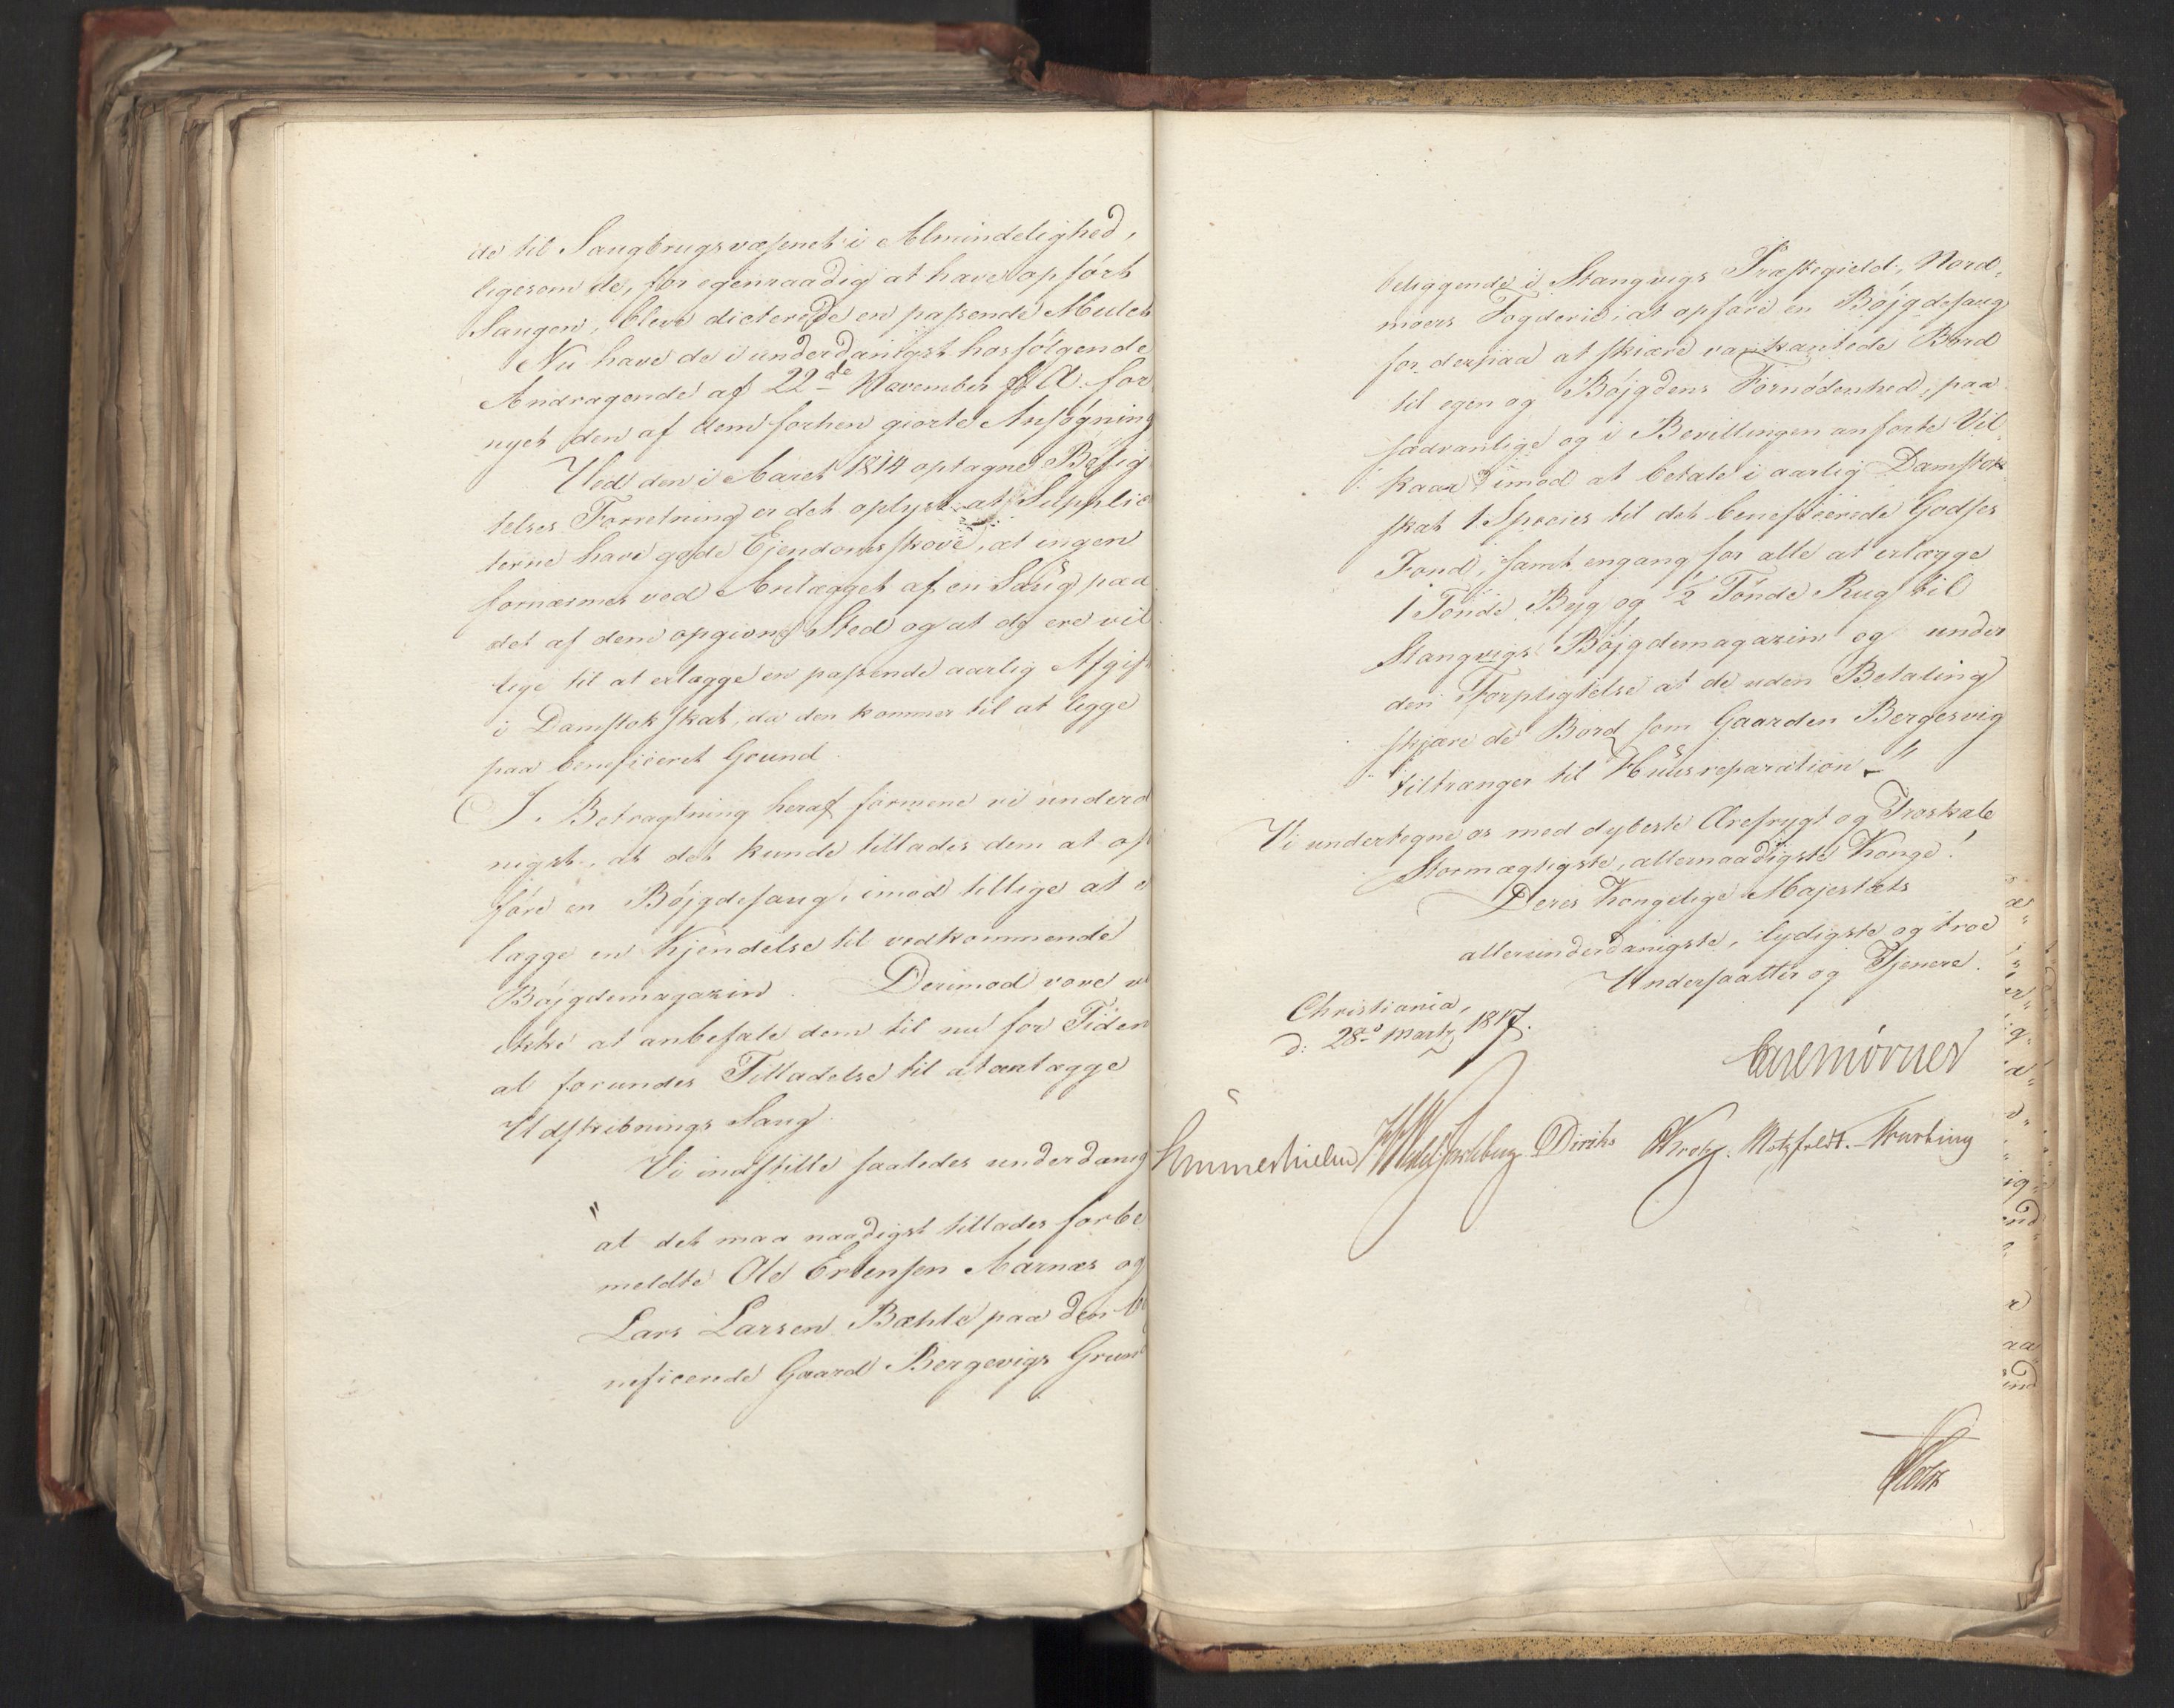 de til Saugbrugsvæsenet i Almindelighed,
ligesom de, for egenraadig at have opført
Saugen, bleve dicterede en passende Mulct
Nu have de i underdanigst hosfølgende
Andragende af 22de November f. A. for
nyet den af dem forhen giorte Ansøgning
Ved den i Aaret 1814 optagne Besig
telses Forretning er det oplyst at Supplic
terne have gode Ejendomsskove, at ingen
fornærmes ved Anlægget af en Saug paa
det af dem opgivne Sted og at de ere vil
lige til at erlægge en passende aarlig Afgift
i Damstokskat, da den kommer til at ligge
paa beneficeret Grund.
I Betragtning heraf formene vi underd
nigst, at det kunde tillades dem at op
føre en Bøjgdesaug, imod tillige at e
lægge en Kjendelse til vedkommende
Bøjgdemagazin. Derimod vove vi
ikke at anbefale dem til nu for Tiden
at forundes Tilladelse til at anlægge
Udskibnings Saug.
Vi indstille saaledes underdanig
" at det maa naadigst tillades forbe
meldte Ole Ertensen Aarnæs og
Lars Larsen Bæhle paa den be
neficerede Gaard Bergevigs Grund
beliggende i Stangvigs Præstegield, Nord-
moers Fogderie, at opføre en Bøjgdesaug
for derpaa at skiære vankantede Bord
til egen og Bøjgdens Fornødenhed, paa
sædvanlige og i Bevillingen anførte Vil-
kaar, imod at betale i aarlig Damstok
skat 1 Species til det beneficerede Godses
Fond, samt engang for alle at erlægge
1 Tønde Byg og 1/2 Tønde Rug til
Stangvigs Bøjgdemagazin og under
den Forpligtelse at de uden Betaling
skjære de Bord som Gaarden Bergesvig
tiltrænger til Huusreparation."
Vi undertegne os med dybeste Ærefrygt og Troskab
Stormægtigste, allernaadigste Konge!
Deres Kongelige Majestæts
allerunderdanigste, lydigste og troe
Undersaatter og Tjenere.
Christiania,
d: 28de Marts 1817.
Carl Mörner
Sommerhielm Diriks Krogh. Motzfeldt.